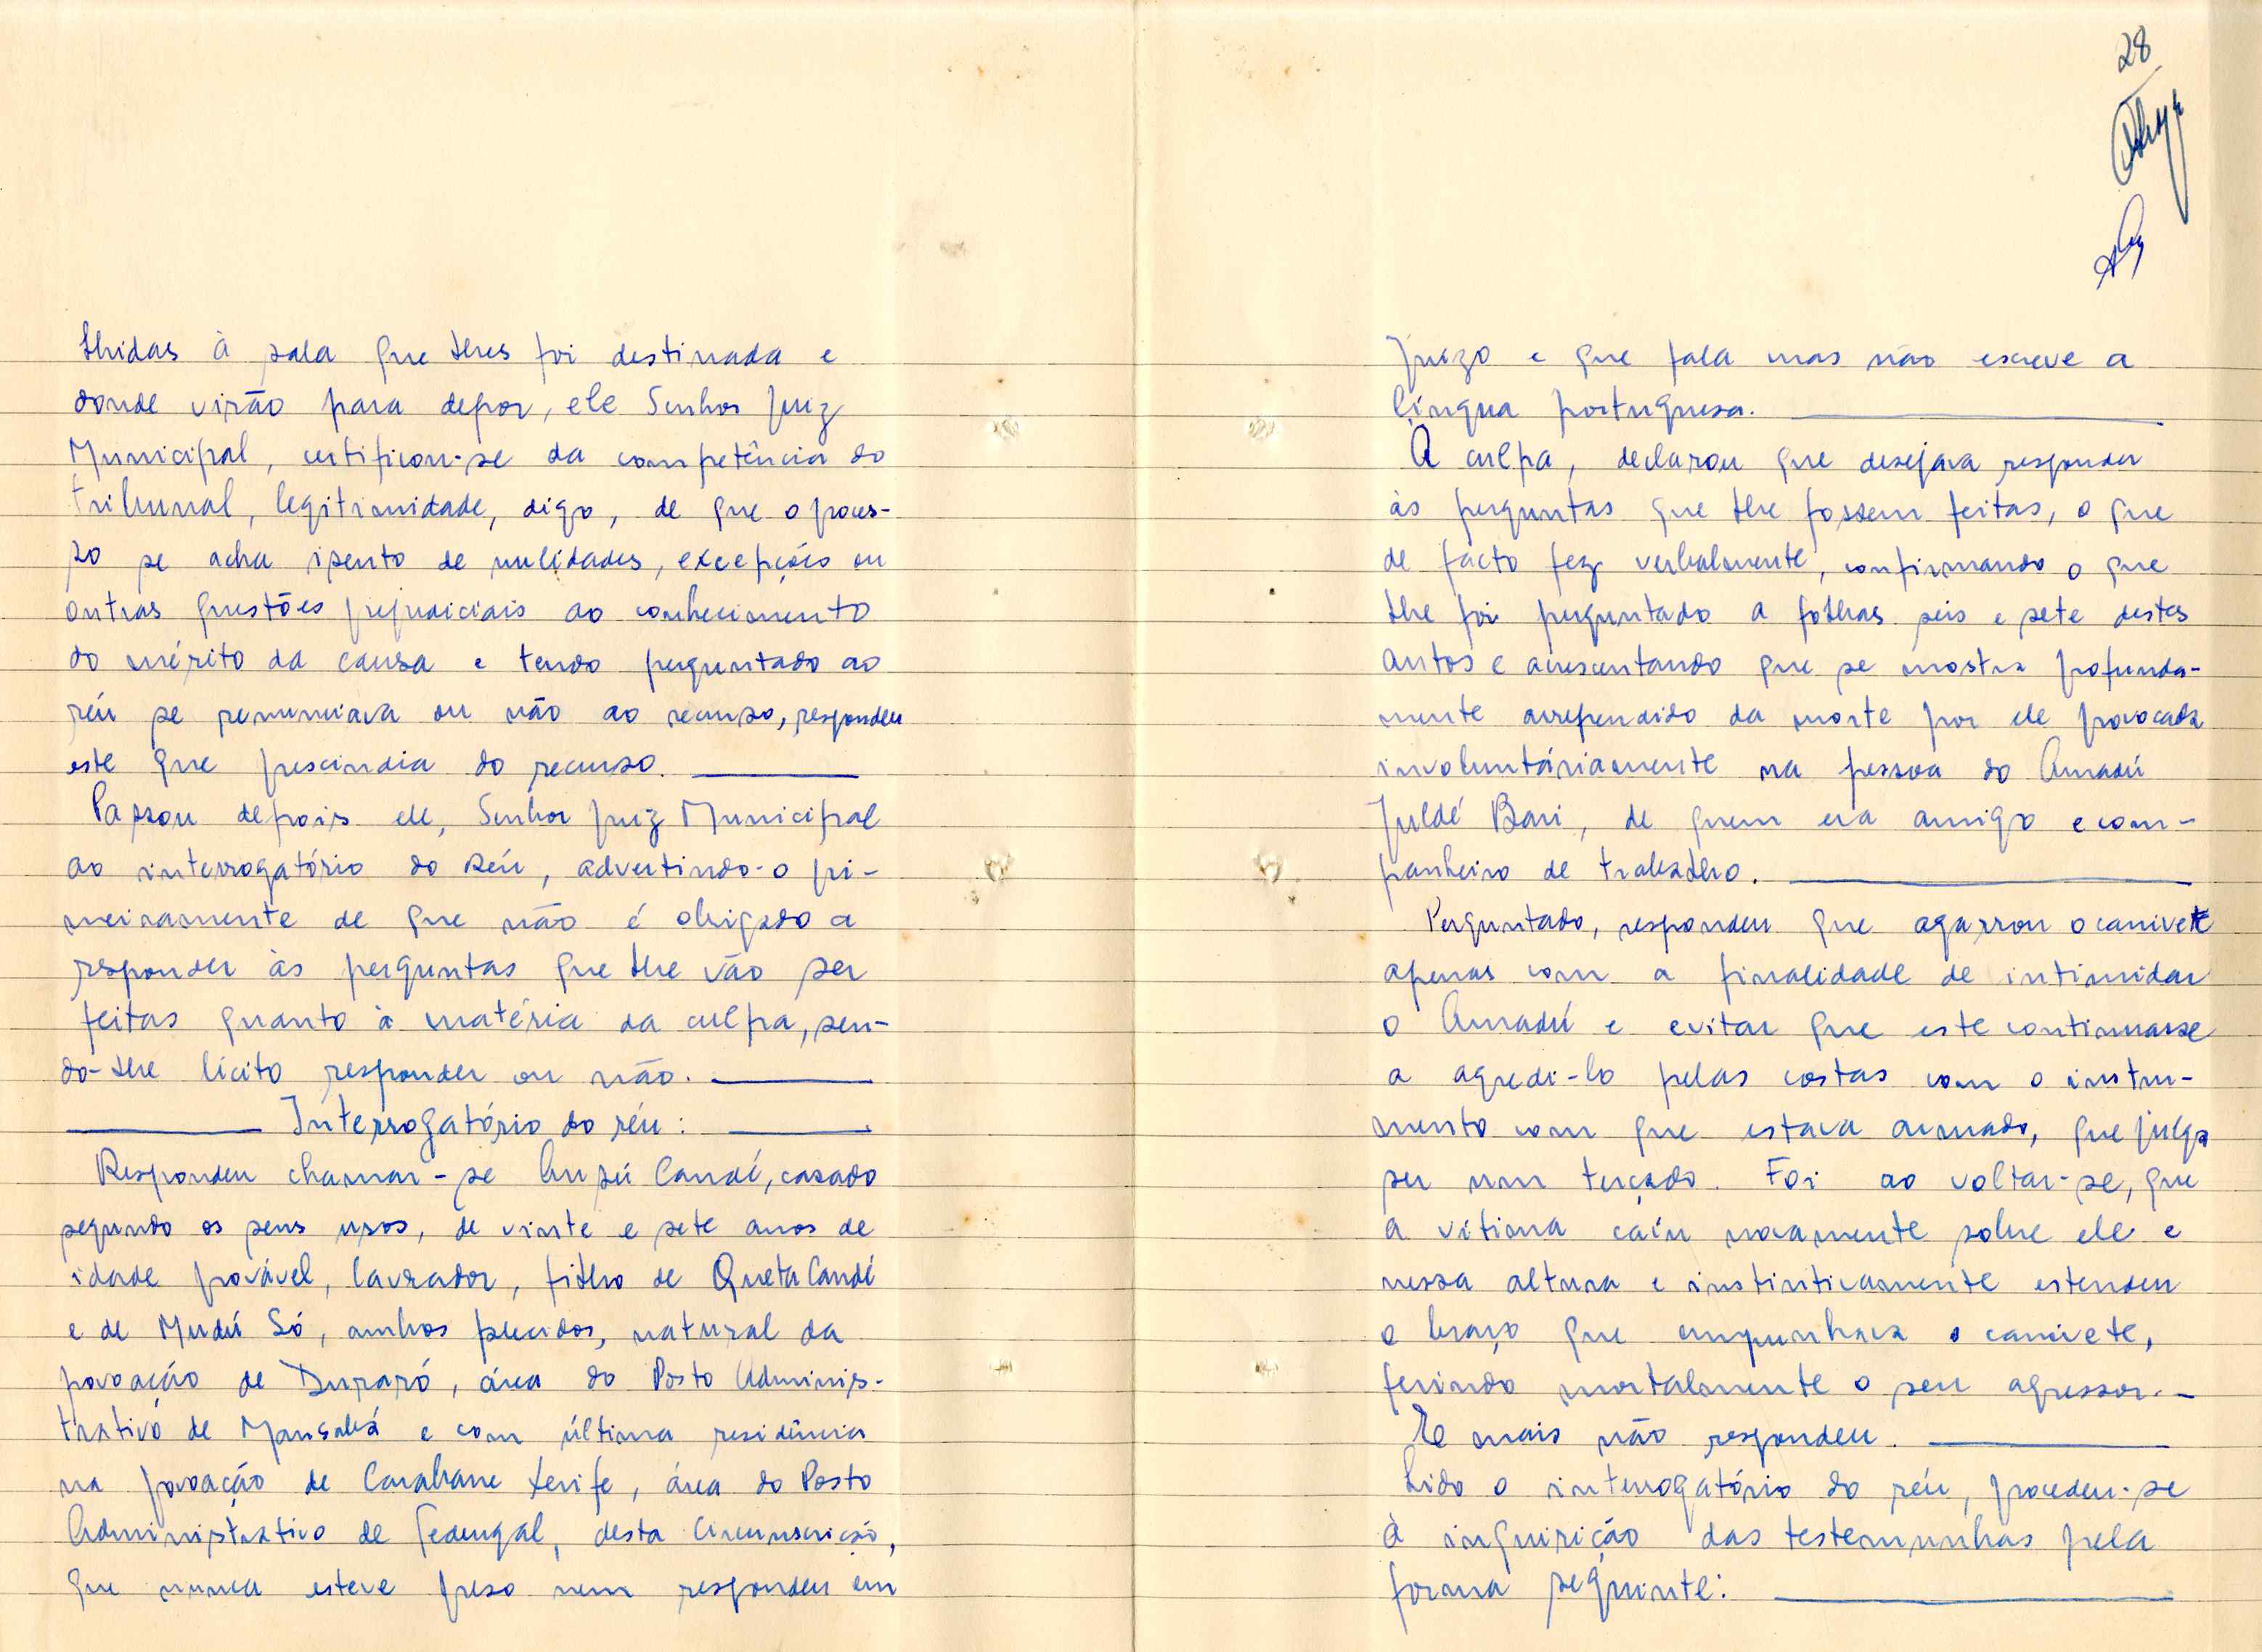 lhidas à sala que lhes foi destinada e
donde virão para depor, ele Senhor Juiz
Municipal, certificou-se da competência do
tribunal, legitimidade, digo, de que o proces-
so se acha isento de nulidades, excepções ou
outras questões prejudiciais ao conhecimento
do mérito da causa e tendo perguntado ao
réu se renunciava ou não ao recurso, respondeu
este que prescindia do recurso.
Passou depois ele, Senhor Juiz Municipal
ao interrogatório do Réu, advertindo-o pri-
meiramente de que não é obrigado a
responder às perguntas que lhe vão ser
feitas quanto à matéria da culpa, sen-
do-lhe lícito responder ou não.
Interrogatório do réu:
Respondeu chamar-se Candé, casado
segundo os seus usos, de vinte e sete anos de
idade provável, lavrador, filho de Queta Candé
e de Mudú Só, ambos falecidos, natural da
povoação de Dureró, área do Posto Adminis-
trativo de Mansabá e com última residência
na povoação de Xerife, área do Posto
Administrativo de desta Circunscrição,
que nunca esteve preso nem respondeu em
28
Juízo e que fala mas não escreve a
língua portuguesa.
À culpa, declarou que desejava responder
às perguntas que lhe fossem feitas, o que
de facto fez verbalmente, confirmando o que
lhe foi perguntado a folhas seis e sete destes
autos e acrescentando que se mostra profunda-
mente arrependido da morte por ele provocada
involuntáriamente na pessoa do Amadú
Juldé Bari, de quem era amigo e com-
panheiro de trabalho.
Perguntado, respondeu que agarrou o canivete
apenas com a finalidade de intimidar
o Amadú e evitar que este continuasse
a agredi-lo pelas costas com o instru-
mento com que estava armado, que julga
ser um terçado. Foi ao voltar-se, que
a vítima caíu novamente sobre ele e
nessa altura e instintivamente estendeu
o braço que empunhava o canivete,
ferindo mortalmente o seu agressor.-
E mais não respondeu.
Lido o interrogatório do réu, procedeu-se
à inquirição das testemunhas pela
forma seguinte: